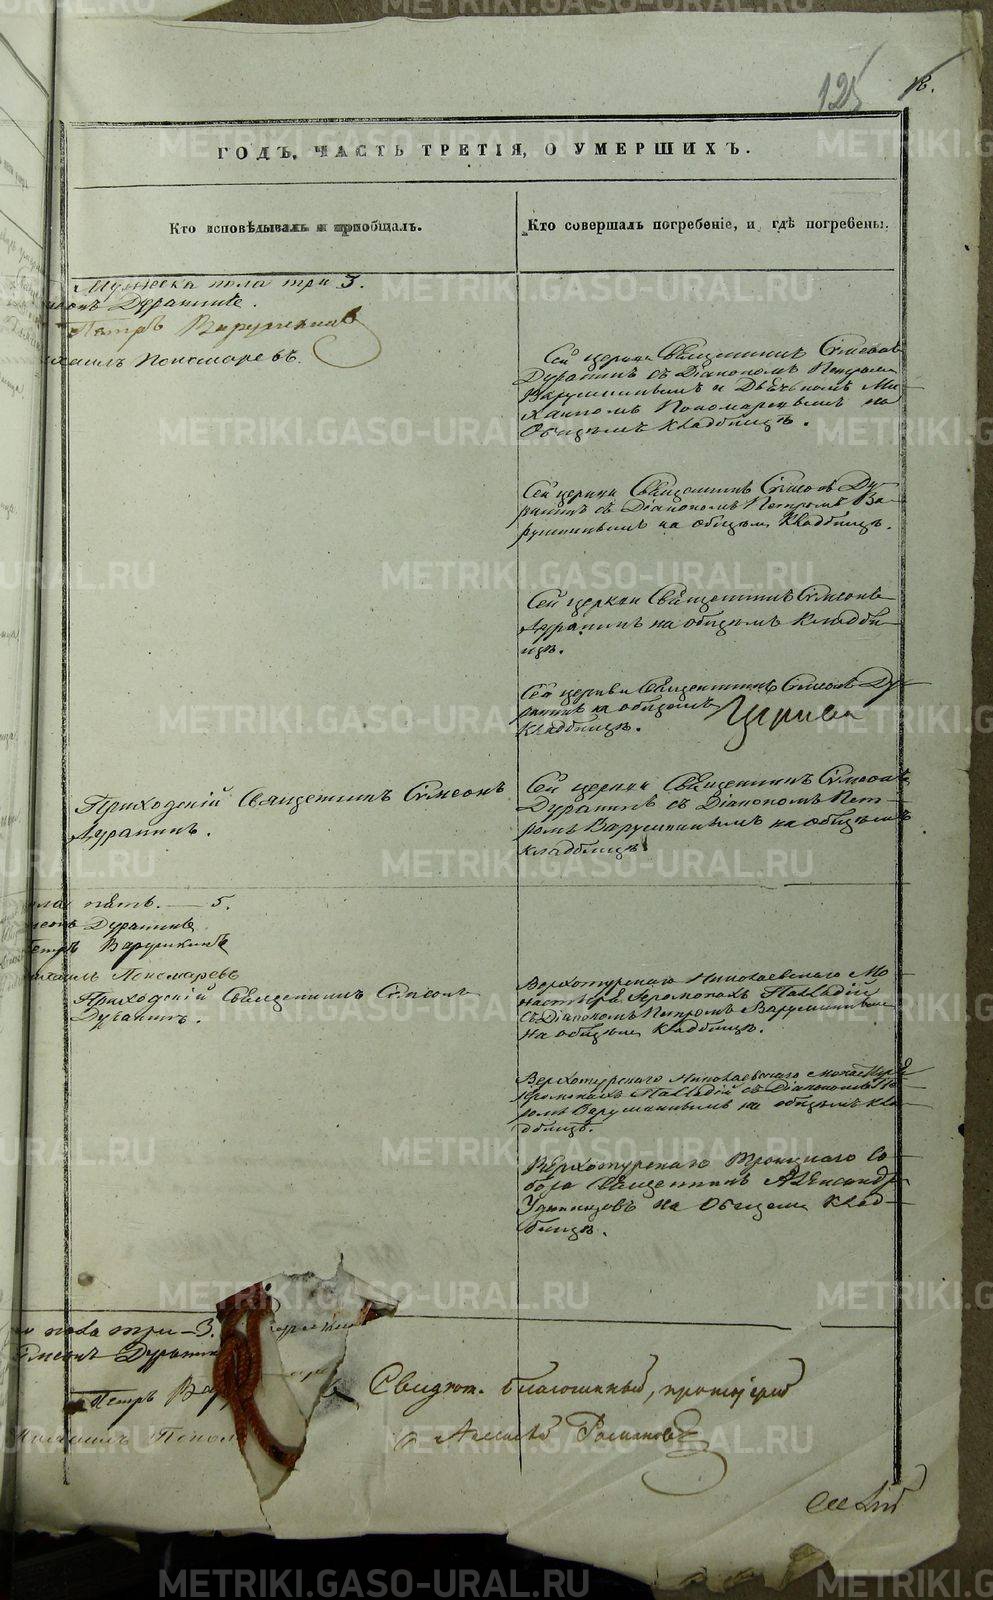 125
18.
ГОДЪ, ЧАСТЬ ТРЕТІЯ, О УМЕРШИХЪ.
Кто исповѣдывалъ и пріобщалъ.
Кто совершалъ погребеніе, и гдѣ погребены.
Мужеска пола три 3.
Дурагинъ.
Петръ Варушкинъ
Михаилъ Пономаревъ.
Сей церкви Священникъ Сѵмеонъ
Дурагинъ съ Діакономъ Петромъ
Варушкинымъ и Дьячкомъ Ми-
хаиломъ Пономаревымъ на
Общемъ кладбищѣ.
Сей церкви Священникъ Сѵмеонъ Ду-
рагинъ съ Діакономъ Петромъ Ва-
рушкинымъ на общемъ кладбищѣ.
Сей церкви Священникъ Сѵмеонъ
Дурагинъ на общемъ кладби-
щѣ.
Сей церкви Священникъ Сѵмеонъ Ду-
рагинъ на общемъ
кладбищѣ.
Приходскій Священникъ Сѵмеонъ
Дурагинъ.
Сей церкви Священникъ Сѵмеонъ
Дурагинъ съ Діакономъ Пет-
ромъ Варушкинымъ на общемъ
кладбищѣ
пола пять. — 5.
Дурагинъ
Петръ Варушкинъ
Михаилъ Пономаревъ
Приходскій Священникъ Сѵмеонъ
Дурагинъ.
Верхотурскаго Николаевскаго Мо-
настыря Іеромонахъ Палладій
съ Діакономъ Петромъ Варушкинымъ
на общемъ кладбищѣ.
Верхотурскаго Николаевскаго монастыря
Іеромонахъ Палладій съ Діакономъ Пет-
ромъ Варушкинымъ на общемъ кла-
дбищѣ.
Верхотурскаго Троицкаго Со-
бора Священникъ Александръ
на Общемъ клад-
бищѣ.
пола три — 3.
Сѵмеонъ Дурагин
Петръ Вар
Михаилъ Поном
благочинный, протоіерей